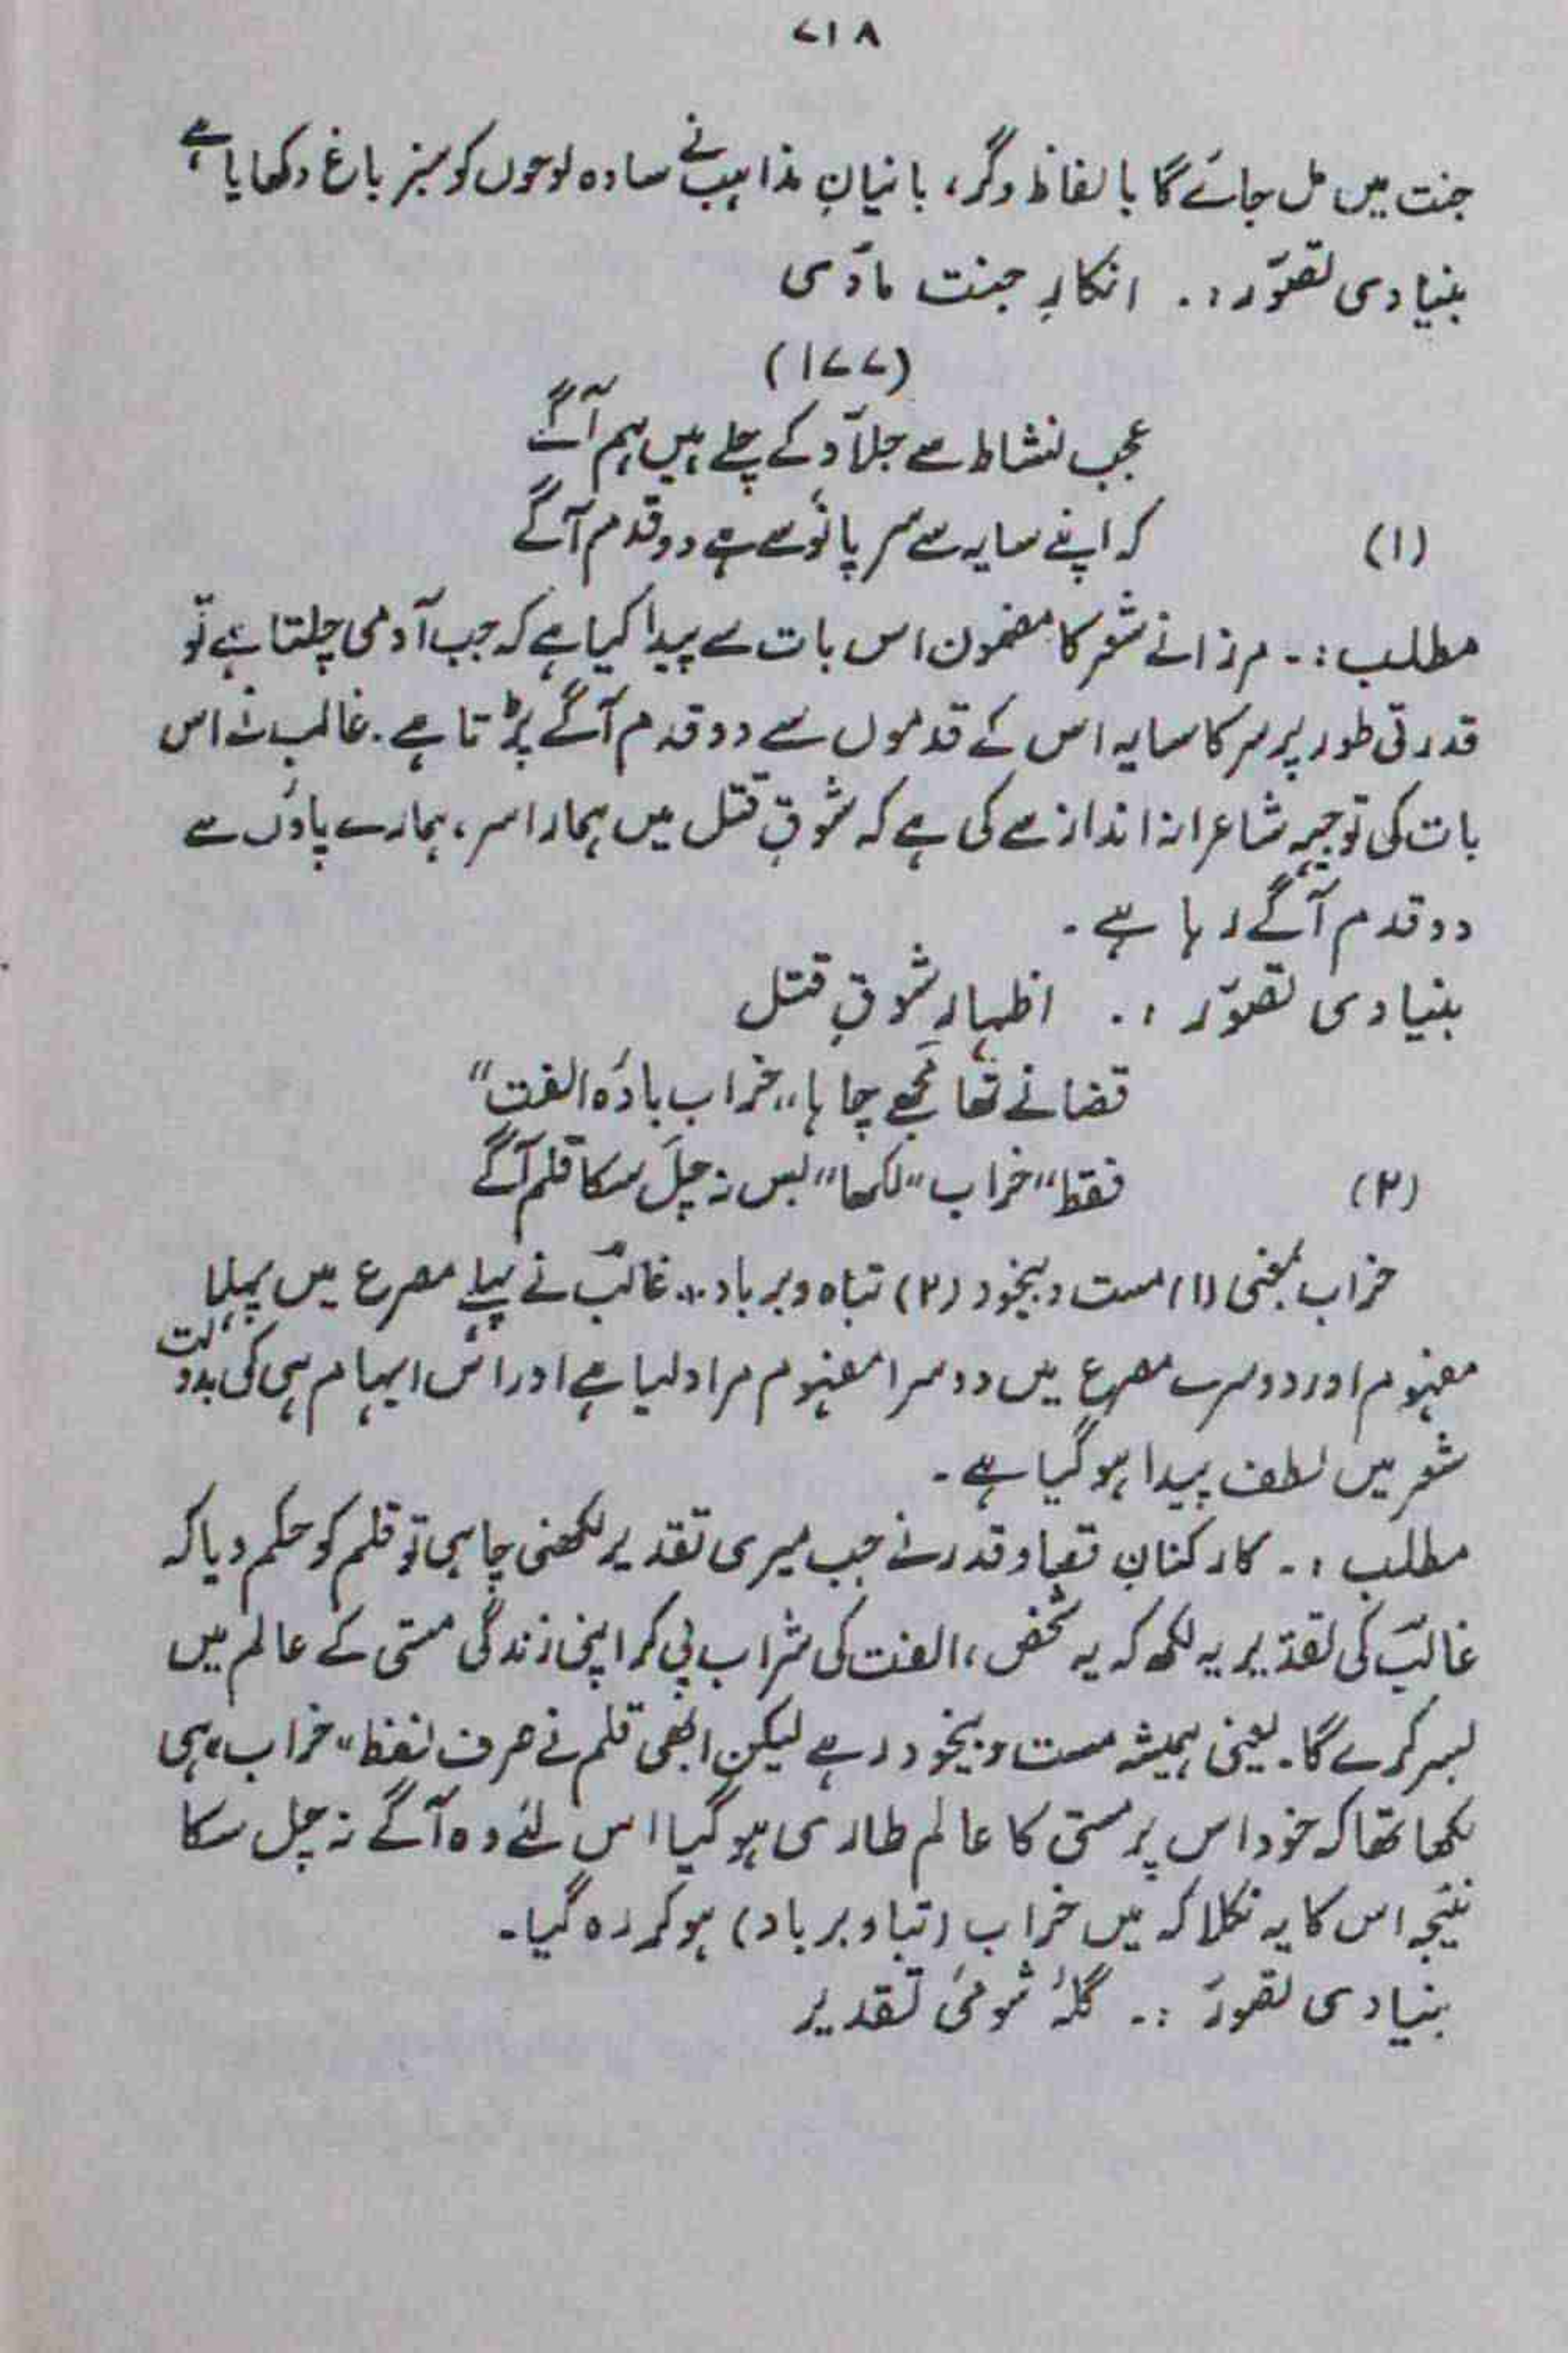 ۷۱۸
جنت میں مل جائے گا بالفاظ دگر، بانیانِ مذاہب نے سادہ لوحوں کو سبز باغ دکھایا ہے
بنیادی تصوّر :۔ انکارِ جنت مادّی
(۱۷۷)
عجب نشاط سے جلاّد کے چلے ہیں ہم آگے
کہ اپنے سایہ سے سر پانؤ سے ہے دو قدم آگے
(۱)
مطلب :۔ مرزا نے شعر کا مضمون اس بات سے پیدا کیا ہے کہ جب آدمی چلتا ہے تو
قدرتی طور پر سر کا سایہ اس کے قدموں سے دو قدم آگے پڑتا ہے۔ غالبؔ نے اس
بات کی توجیہہ شاعرانہ انداز سے کی ہے کہ شوقِ قتل میں ہمارا سر، ہمارے پاؤں سے
دو قدم آگے رہا ہے۔
بنیادی تصوّر :۔ اظہارِ شوقِ قتل
قضا نے تھا مجھے چاہا "خراب بادۂ الفت"
فقط "خراب" لکھا" بس نہ چل سکا قلم آگے
(۲)
خراب بمعنی (۱) مست و بیخود (۲) تباہ و برباد۔ غالبؔ نے پہلے مصرع میں پہلا
مفہوم اور دوسرے مصرع میں دوسرا مفہوم مراد لیا ہے اور اس ایہام ہی کی بدولت
شعر میں لطف پیدا ہوگیا ہے۔
مطلب :۔ کارکنانِ قضا و قدر نے جب میری تقدیر لکھنی چاہی تو قلم کو حکم دیا کہ
غالبؔ کی تقدیر یہ لکھ کہ یہ شخص، الفت کی شراب پی کر اپنی زندگی مستی کے عالم میں
بسر کرے گا۔ یعنی ہمیشہ مست و بیخود رہے لیکن ابھی قلم نے صرف لفظ "خراب" ہی
لکھا تھا کہ خود اس پر مستی کا عالم طاری ہوگیا اس لئے وہ آگے نہ چل سکا
نتیجہ اس کا یہ نکلا کہ میں خراب (تبا و برباد) ہوکر رہ گیا۔
بنیادی تصور :۔ گلۂ شومئ تقدیر